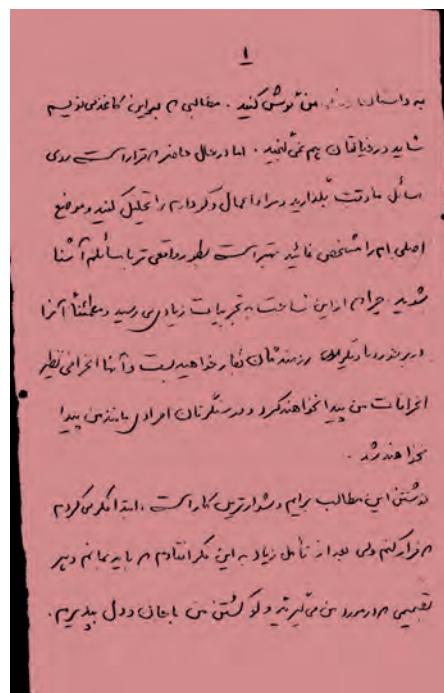 ۱
به داستان من گوش کنید . مطالبی که بر این کاغذ می‌نویسم
شاید در خیالتان هم نمی‌گنجد . اما در حال حاضر که قرار است روی
مسائل ما وقت بگذارید و مرا و اعمال و کردارم را تحلیل کنید و موضع
اصلی ام را مشخص نمائید بهتر است بطور واقعی تر با مسائلم آشنا
شوید . چرا که از این شناخت به تجربیات زیادی می رسید و مطمئناً آنرا
در برخورد با دیگر رزمندگان بکار خواهید بست و آنها انحرافی نظیر
انحرافات من پیدا نخواهند کرد و در سنگرتان افرادی مانند من پیدا
نخواهند شد .
نوشتن این مطالب برایم دشوارترین کار است ، ابتدا فکر می کردم
که فرار کنم ولی بعد از تأمل زیاد به این فکر افتادم که باید بمانم و هر
تصمیمی که در مورد من می گیرید ولو کشتن من با جان و دل بپذیرم .